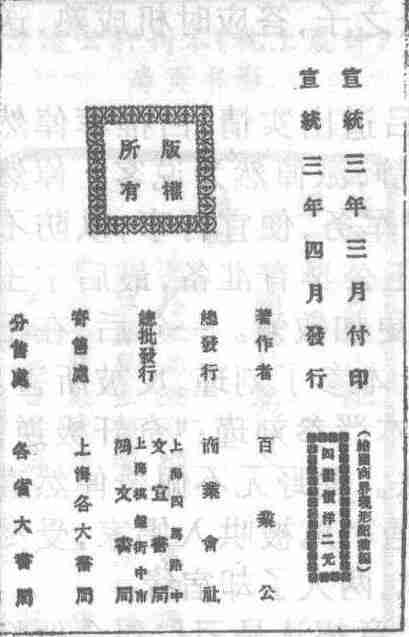 宣統三年三月付印
宣統三年四月發行
版權
所有
(繪圖商界現形記前編)
四冊價洋二元
著作者 百業公
總發行 商業會社
總批發行
上海四馬路中
文宜書局
上海棋盤街中市
鴻文書局
寄售處 上海各大書局
分售處 各省大書局